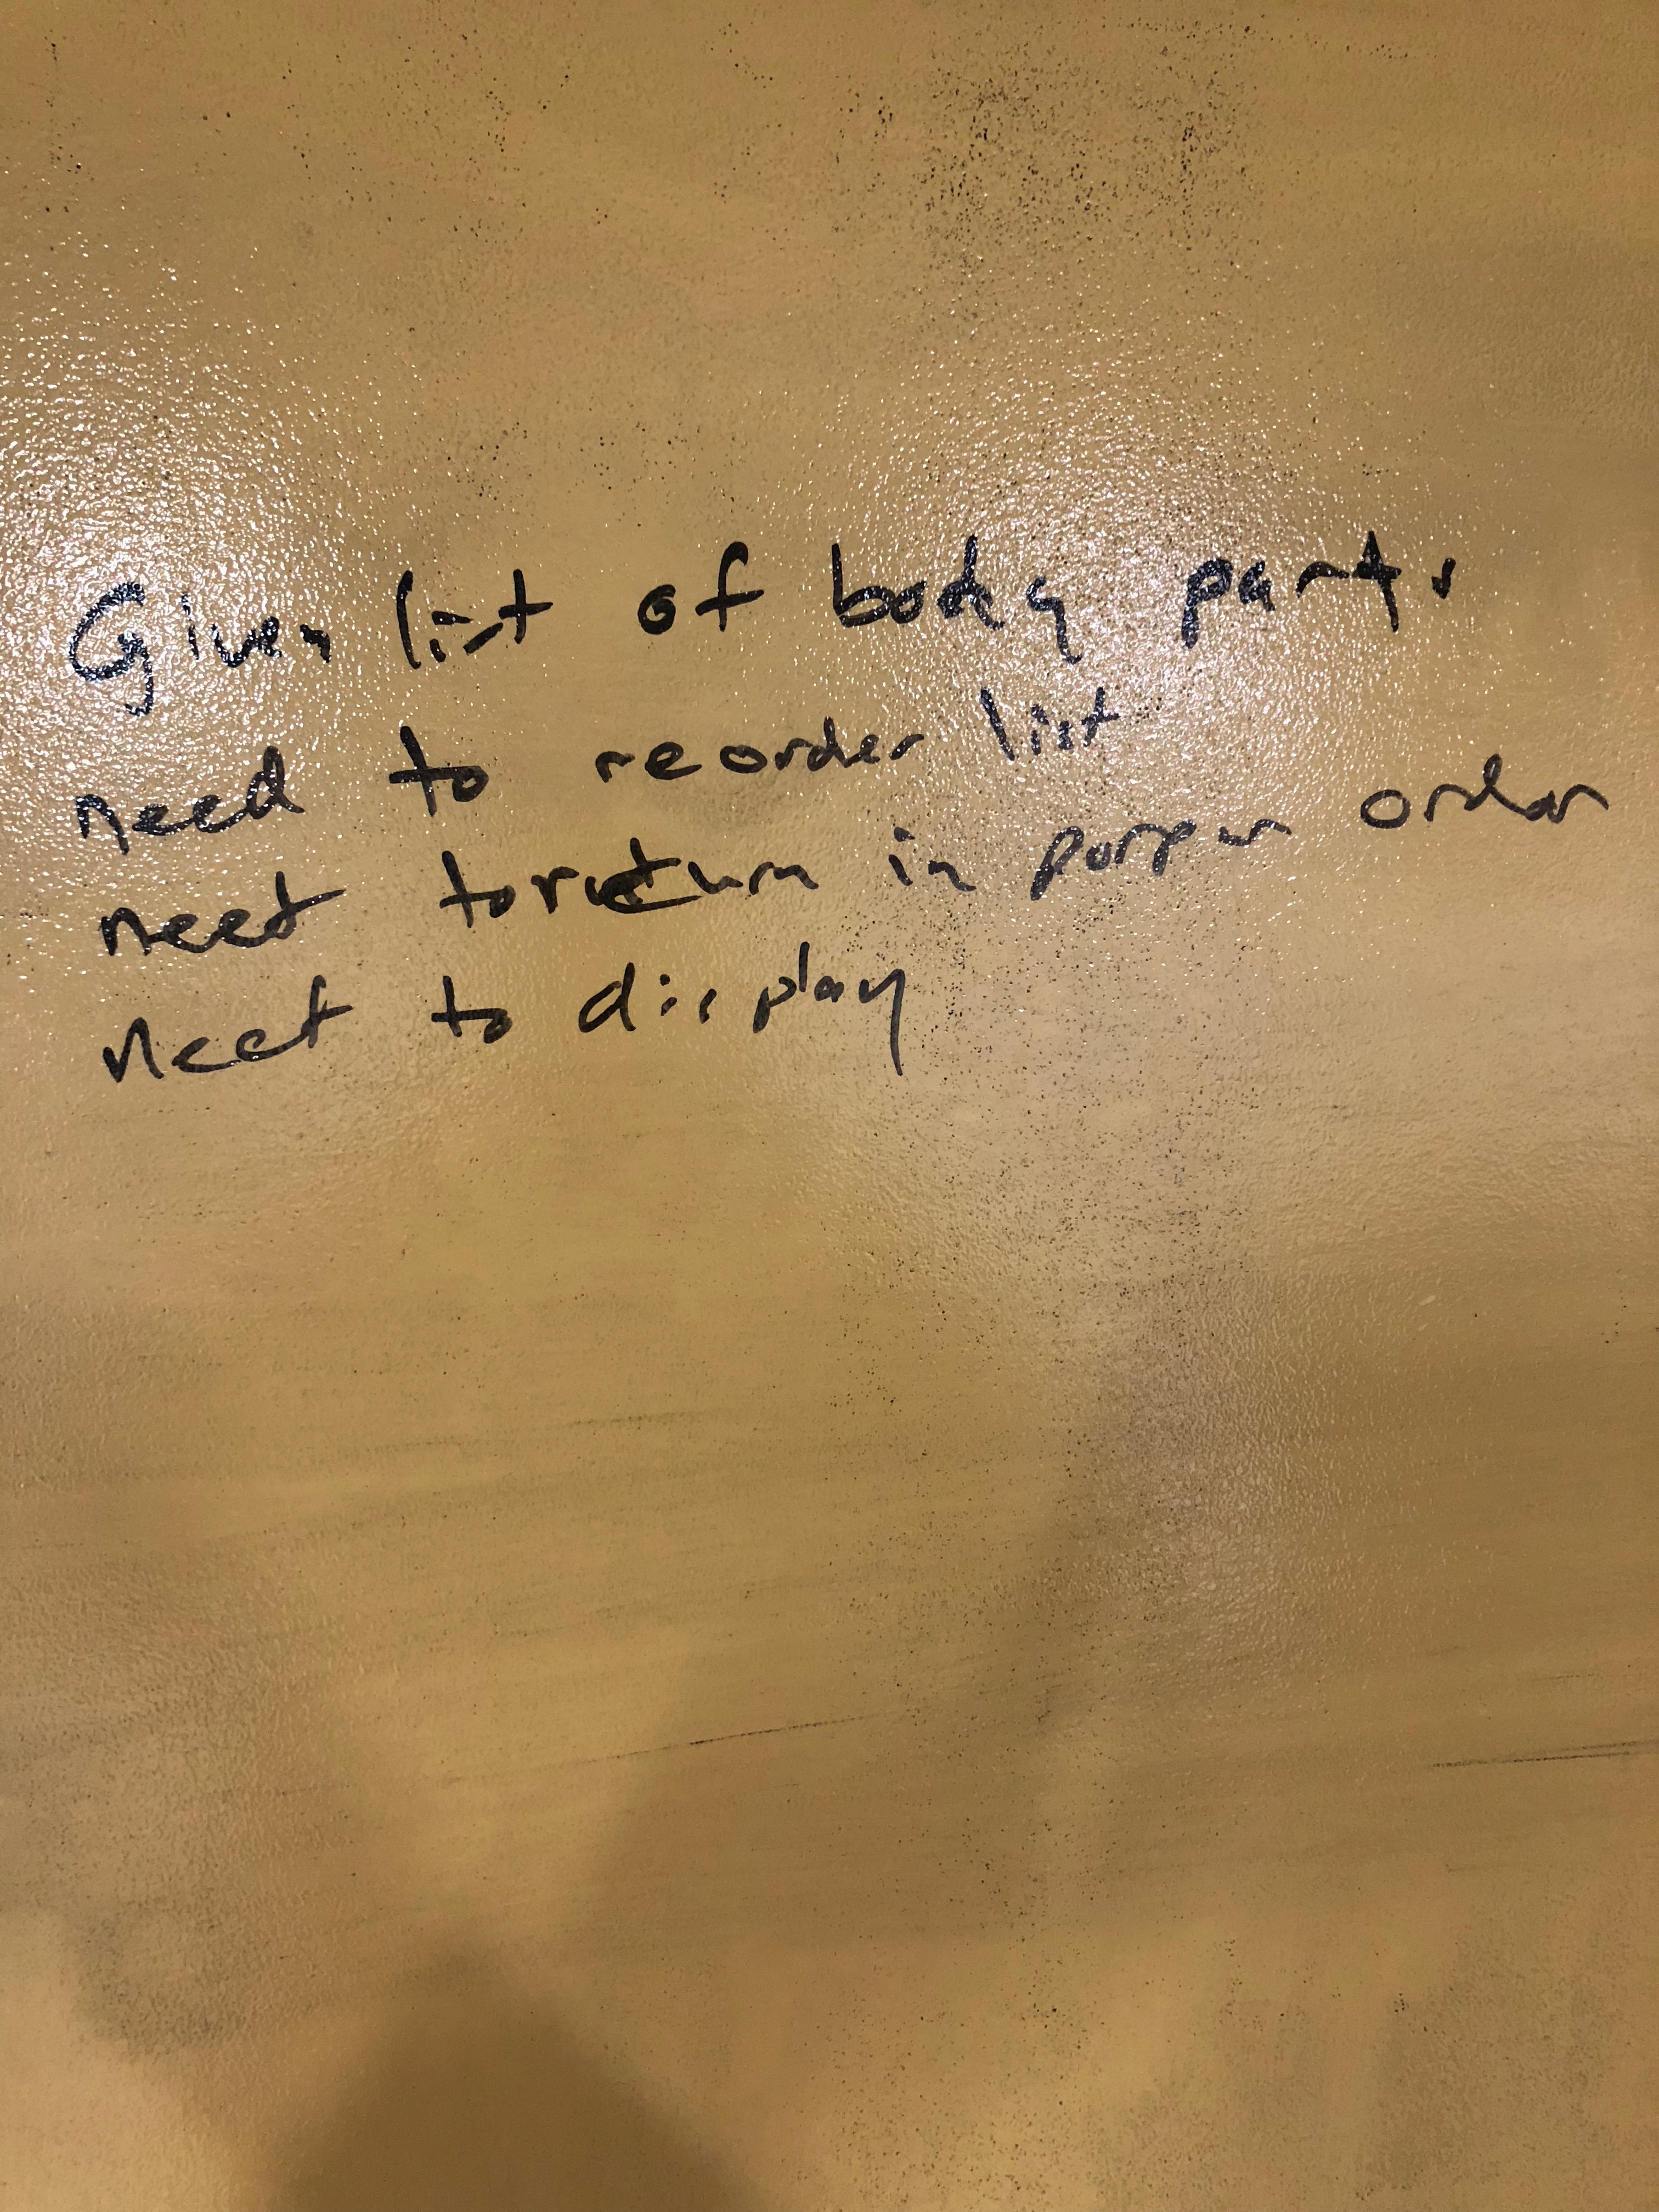 Given list of body parts
need to reorder list
need to return in porper order
need to display